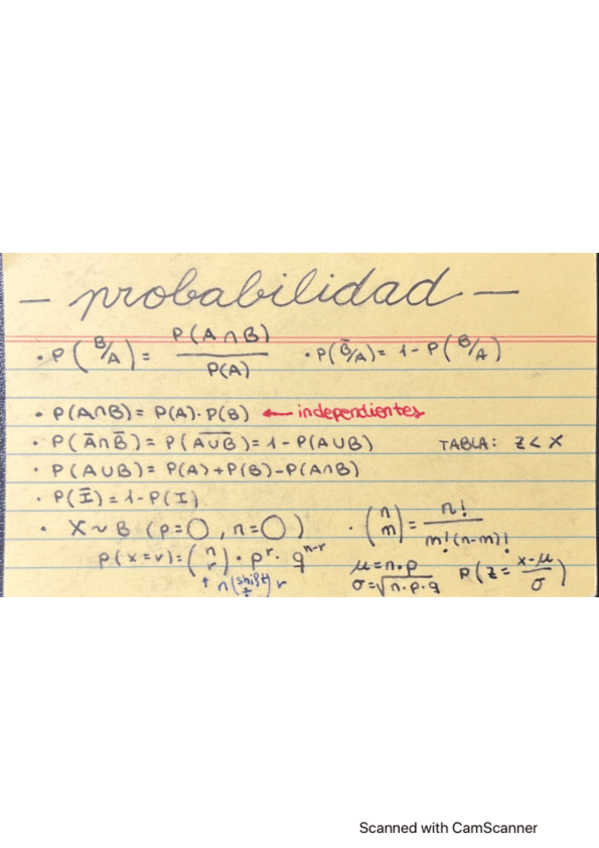 - probabilidad -
• P(B/A) = P(A∩B) / P(A) • P(B̄/A) = 1 - P(B/A)
• P(A∩B) = P(A)·P(B) ← independientes
• P(Ā∩B̄) = P(A∪B)̅ = 1 - P(A∪B) TABLA: Z < X
• P(A∪B) = P(A) + P(B) - P(A∩B)
• P(Ī) = 1 - P(I)
• X ~ B (p=○, n=○) · (n m) = n! / m!(n-m)!
P(x=r) = (n r) · pʳ · qⁿ⁻ʳ
↑ n (shift) r
μ = n·p
σ = √n·p·q
P(Z = x-μ / σ)
Scanned with CamScanner